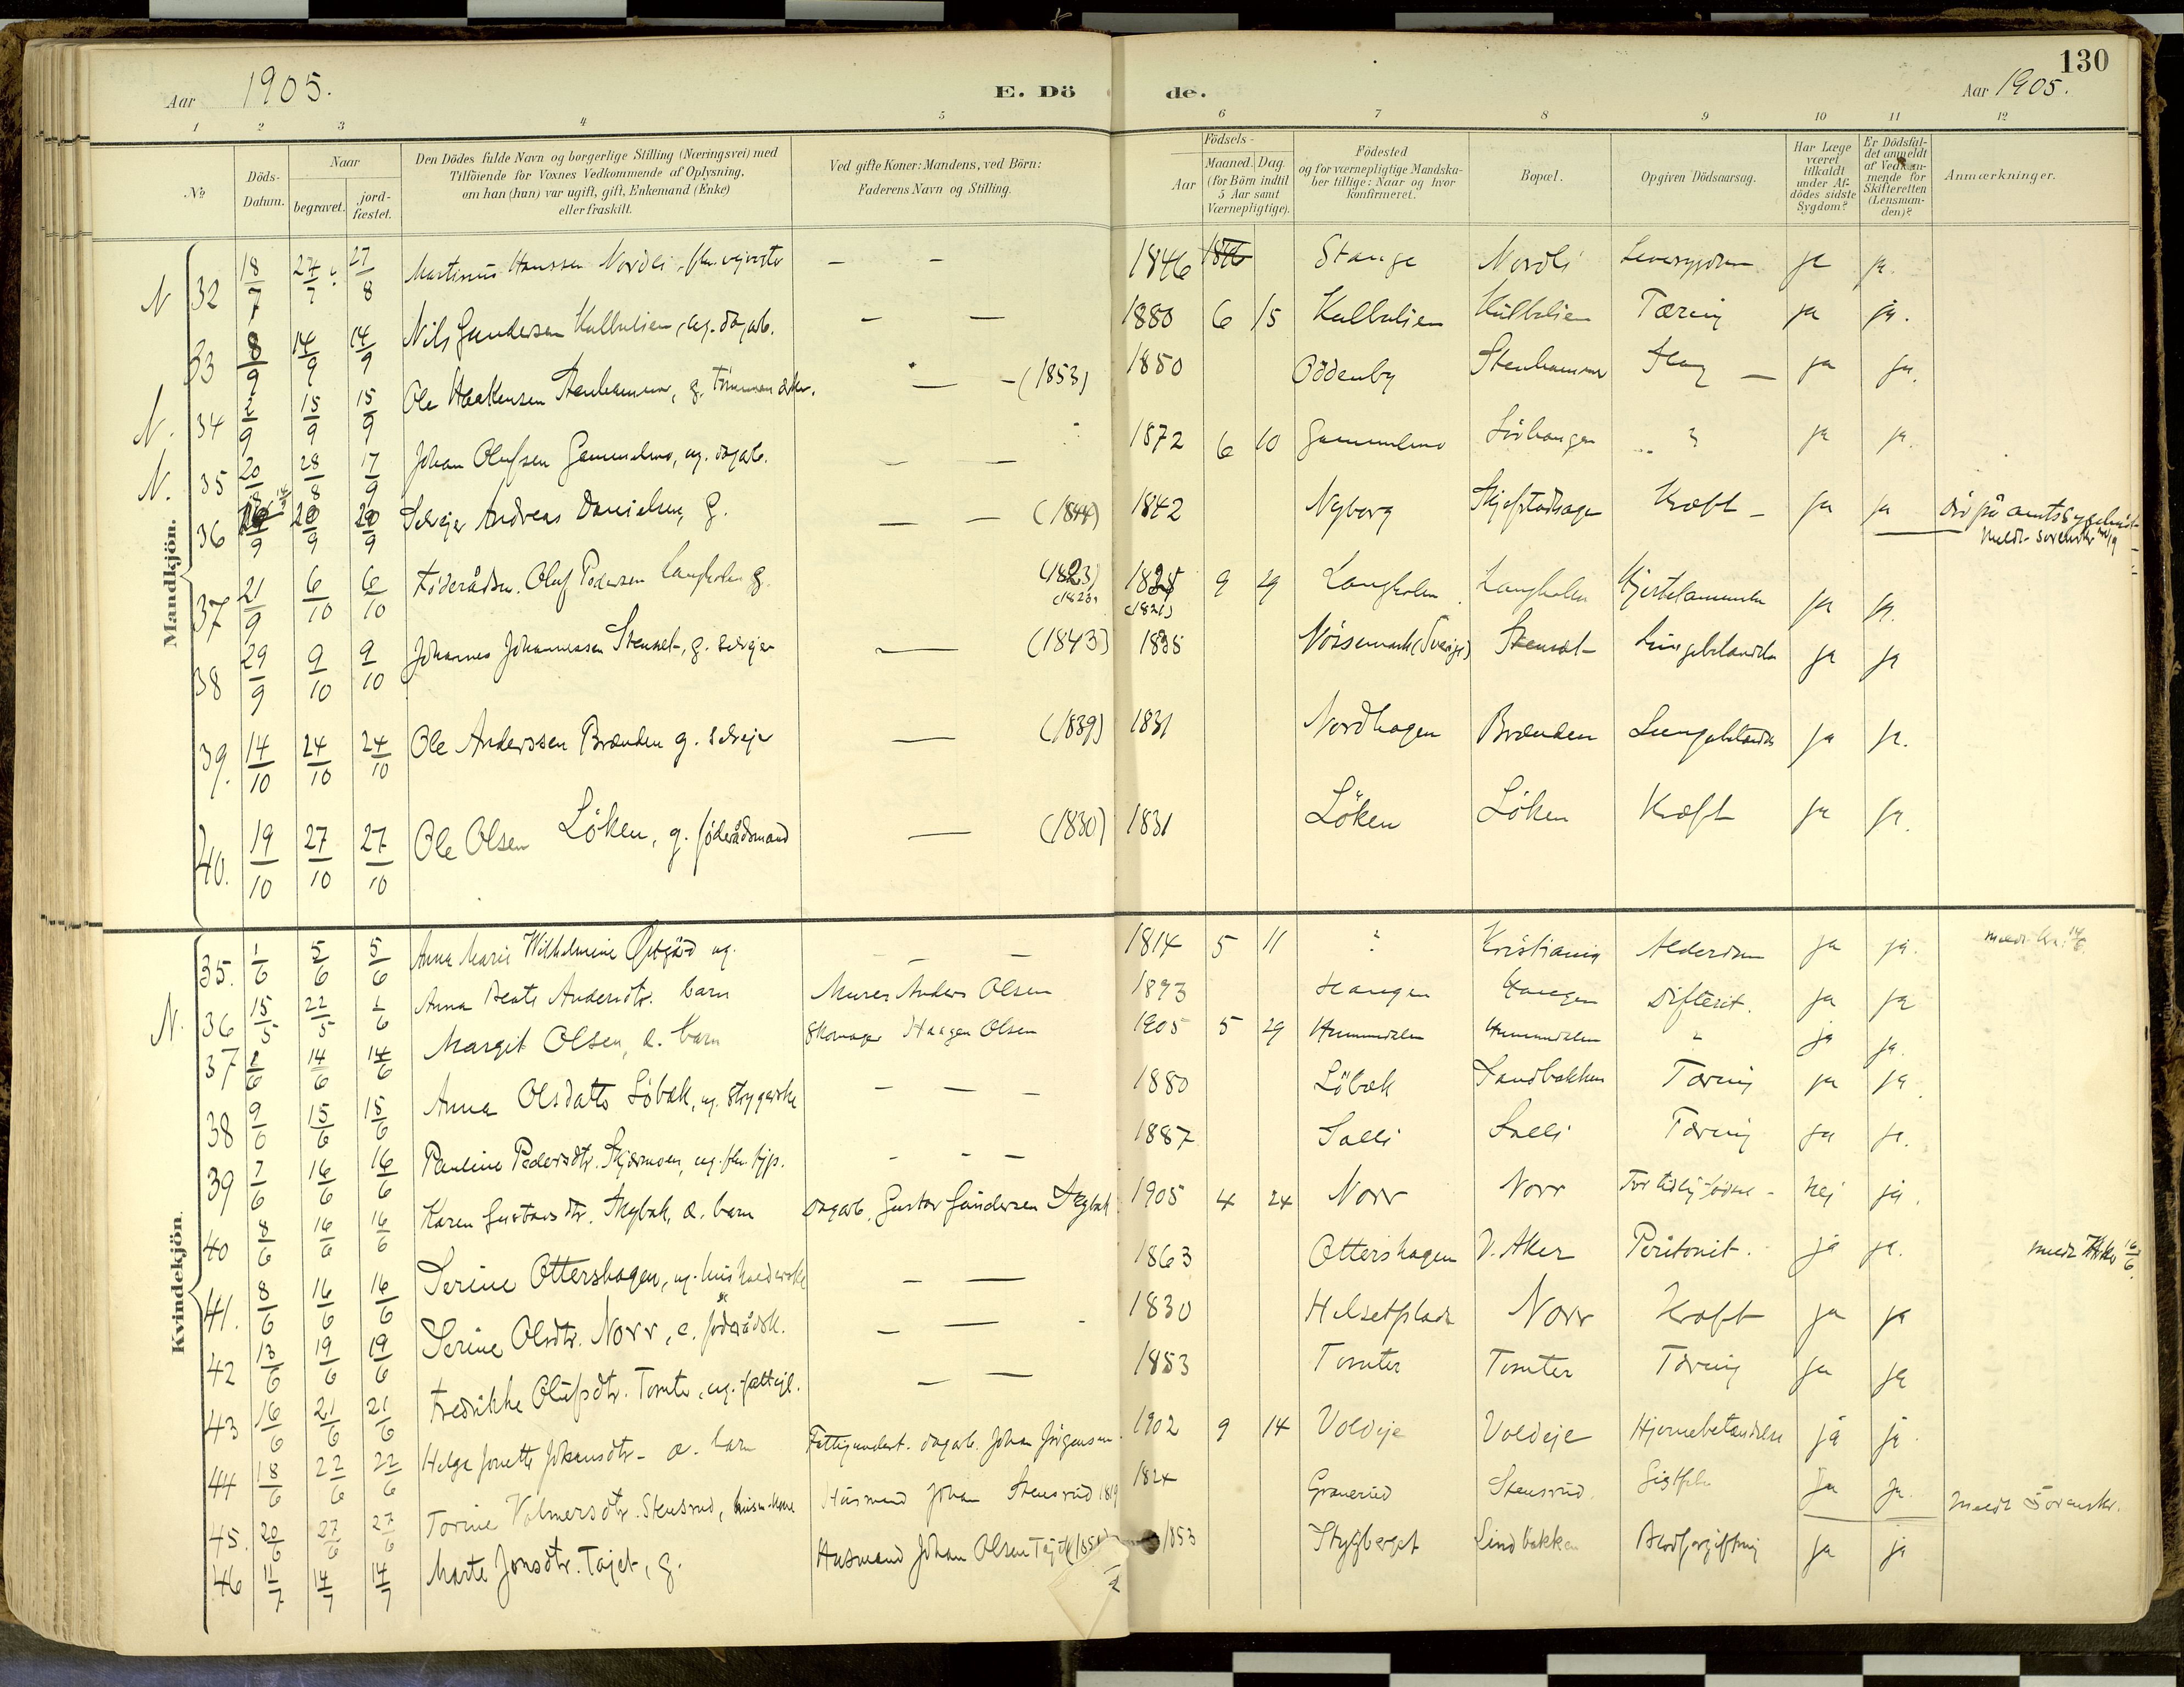 130
Aar 1905. E. Dö de. Aar 1905.
1 2 3 4 5 6 7 8 9 10 11 12
No
Döds-Datum.
Naar
begravet.
jordfæstet.
Den Dödes fulde Navn og borgerlige Stilling (Næringsvei) med
Tilföiende for Voxnes Vedkommende af Oplysning,
om han (hun) var ugift, gift, Enkemand (Enke)
eller fraskilt.
Ved gifte Koner: Mandens, ved Börn:
Faderens Navn og Stilling.
Födsels-
Aar
Maaned. Dag.
(for Börn indtil
5 Aar samt
Værnepligtige).
Födested
og for værnepligtige Mandskaber tillige: Naar og hvor
konfirmeret.
Bopæl.
Opgiven Dödsaarsag.
Har Læge
været
tilkaldt
under Afdödes sidste
Sygdom?
Er Dödsfaldet anmeldt
af Vedkommende for
Skifteretten
(Lensmanden)?
Anmærkninger.
Mandkjön.
N 32 18/7 27/7 27/8 Martinus Hanssen Nordli — — 1846 Stange Nordli ja ja.
33 8/9 14/9 14/9 Nils Gundersen Kulbulien, ug. dagarb. — — 1880 6 15 Kulbulien Kulbulien Tæring ja ja.
N. 34 2/9 15/9 15/9 Ole Haakensen Stenhammer, g. — — (1853) 1850 Oddenby Stenhammer — ja ja.
N. 35 20/8 28/8 17/9 Johan Olufsen Gammelmo, ug. dagarb. — — 1872 6 10 Gammelmo ja ja.
36 20/9 20/9 Selvejer Andreas Danielsen, g. — — (1844) 1842 Nyborg Skjefstadhagen Kræft — ja ja död på amtssygehuset
37 21/9 6/10 6/10 Föderådsm. Oluf Pedersen Langholen g. (1823) 9 29 Langholen Langholen Hjertelammelse ja ja.
(1821)
38 29/9 9/10 9/10 Johannes Johannessen Stenset, g. selvejer — (1843) 1835 (Sverige) Stenset Lungebetændelse ja ja
39. 14/10 24/10 24/10 Ole Anderssen Brænden g. selvejer — (1839) 1831 Nordhagen Brænden Lungebetændelse ja ja.
40. 19/10 27/10 27/10 Ole Olsen Löken, g. föderådsmand — (1830) 1831 Löken Löken Kræft ja ja.
Kvindekjön.
35. 1/6 5/6 5/6 Anna Marie Wilhelmine ug. — — 1814 5 11 ? Kristiania ja ja.
N. 36 15/5 22/5 Anna Beate Andersdtr. barn Murer Anders Olsen 1893 Haugen Haugen Difterit. ja ja
37 14/6 14/6 Margit Olsen, æ. barn Skomager Haagen Olsen 1905 5 29 Hummedalen Hummedalen " ja ja.
38 9/6 15/6 15/6 Anna Olsdatter Löbak, ug. strygerske — — — 1880 Löbak Sandbakken Tæring ja ja.
39 7/6 16/6 16/6 Pauline Pedersdtr. Skjærmoen, ug. - - - 1887 Salli Salli Tæring ja ja.
40 8/6 16/6 16/6 Karen Gustavsdtr. Mybak, æ. barn Dagarb. Gustav Gundersen Mybak 1905 4 24 Norr Norr For tidlig födsel - nej ja.
41. 8/6 16/6 16/6 Serine Ottershagen, ug. husholderske — — 1863 Ottershagen V. Aker Peritonit. ja ja.
42 13/6 19/6 19/6 Serine Olsdtr. Norr, e. föderådsk. — — - 1830 Helsetplads Norr Kræft ja ja
43 16/6 21/6 21/6 Fredrikke Olufsdtr. Tomter, ug. fattigl. — — 1853 Tomter Tomter Tæring ja ja
44 18/6 22/6 22/6 Helga Jonette Johansdtr. æ. barn Fattigunderst. dagarb. Johan Jörgensen. 1902 9 14 Voldeje Voldeje Hjernebetændelse ja ja.
45. 20/6 27/6 27/6 Torine Volmersdtr. Stensrud, Husmand Johan Stensrud 1819 1824 Granerud Stensrud Gigtfeber ja ja. Meldt Sorenskr.
46 11/7 14/7 14/7 Marte Jonsdtr. Tajet, g. Husmand Johan Olsen Tajet 1853 Stygberget Lindbakken Blodforgiftning ja ja